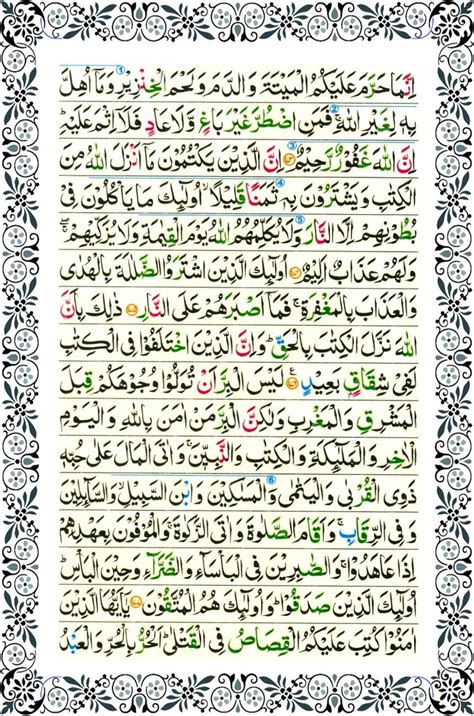 اِنَّمَا حَرَّمَ عَلَيْكُمُ الْمَيْتَةَ وَالدَّمَ وَلَحْمَ الْخِنْزِيْرِ وَمَاۤ اُهِلَّ
بِهٖ لِغَيْرِ اللّٰهِ ۚ فَمَنِ اضْطُرَّ غَيْرَ بَاغٍ وَّلَا عَادٍ فَلَاۤ اِثْمَ عَلَيْهِ ؕ
اِنَّ اللّٰهَ غَفُوْرٌ رَّحِيْمٌ اِنَّ الَّذِيْنَ يَكْتُمُوْنَ مَاۤ اَنْزَلَ اللّٰهُ مِنَ
الْكِتٰبِ وَيَشْتَرُوْنَ بِهٖ ثَمَنًا قَلِيْلًا ۙ اُولٰٓئِكَ مَا يَاْكُلُوْنَ فِيْ
بُطُوْنِهِمْ اِلَّا النَّارَ وَلَا يُكَلِّمُهُمُ اللّٰهُ يَوْمَ الْقِيٰمَةِ وَلَا يُزَكِّيْهِمْ ۖۚ
وَلَهُمْ عَذَابٌ اَلِيْمٌ اُولٰٓئِكَ الَّذِيْنَ اشْتَرَوُا الضَّلٰلَةَ بِالْهُدٰى
وَالْعَذَابَ بِالْمَغْفِرَةِ ۚ فَمَاۤ اَصْبَرَهُمْ عَلَى النَّارِ ذٰلِكَ بِاَنَّ
اللّٰهَ نَزَّلَ الْكِتٰبَ بِالْحَقِّ ؕ وَاِنَّ الَّذِيْنَ اخْتَلَفُوْا فِي الْكِتٰبِ
لَفِيْ شِقَاقٍۭ بَعِيْدٍ لَيْسَ الْبِرَّ اَنْ تُوَلُّوْا وُجُوْهَكُمْ قِبَلَ
الْمَشْرِقِ وَالْمَغْرِبِ وَلٰكِنَّ الْبِرَّ مَنْ اٰمَنَ بِاللّٰهِ وَالْيَوْمِ
الْاٰخِرِ وَالْمَلٰٓئِكَةِ وَالْكِتٰبِ وَالنَّبِيّٖنَ ۚ وَاٰتَى الْمَالَ عَلٰى حُبِّهٖ
ذَوِي الْقُرْبٰى وَالْيَتٰمٰى وَالْمَسٰكِيْنَ وَابْنَ السَّبِيْلِ ۙ وَالسَّآئِلِيْنَ
وَفِي الرِّقَابِ ۚ وَاَقَامَ الصَّلٰوةَ وَاٰتَى الزَّكٰوةَ ۚ وَالْمُوْفُوْنَ بِعَهْدِهِمْ
اِذَا عَاهَدُوْا ۚ وَالصّٰبِرِيْنَ فِي الْبَاْسَآءِ وَالضَّرَّآءِ وَحِيْنَ الْبَاْسِ ؕ
اُولٰٓئِكَ الَّذِيْنَ صَدَقُوْا ؕ وَاُولٰٓئِكَ هُمُ الْمُتَّقُوْنَ يٰۤاَيُّهَا الَّذِيْنَ
اٰمَنُوْا كُتِبَ عَلَيْكُمُ الْقِصَاصُ فِي الْقَتْلٰى ؕ اَلْحُرُّ بِالْحُرِّ وَالْعَبْدُ